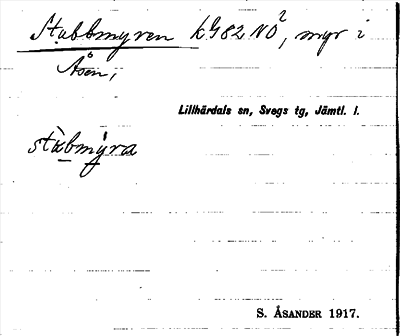 Stubbmyren kG82NO?, myr i
Åsen,
Lillhärdals sn, Svegs tg, Jämtl. l.
stùbmýra
S. ÅSANDER 1917.